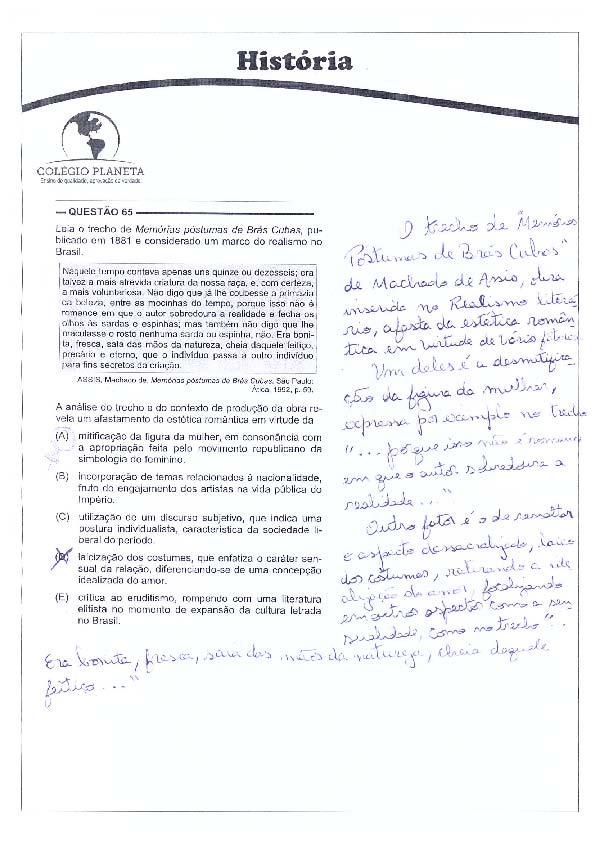 História
COLÉGIO PLANETA
Ensino de qualidade, aprovação de verdade.
QUESTÃO 65
Leia o trecho de Memórias póstumas de Brás Cubas, pu-
blicado em 1881 e considerado um marco do realismo no
Brasil.
Naquele tempo contava apenas uns quinze ou dezesseis; era
talvez a mais atrevida criatura da nossa raça, e, com certeza,
a mais voluntariosa. Não digo que já lhe coubesse a primazia
da beleza, entre as mocinhas do tempo, porque isso não é
romance em que o autor sobredoura a realidade e fecha os
olhos às sardas e espinhas; mas também não digo que lhe
maculasse o rosto nenhuma sarda ou espinha, não. Era boni-
ta, fresca, saía das mãos da natureza, cheia daquele feitiço,
precário e eterno, que o indivíduo passa a outro indivíduo
para fins secretos da criação.
ASSIS, Machado de. Memórias póstumas de Brás Cubas. São Paulo:
Ática, 1992, p. 59.
A análise do trecho e do contexto de produção da obra re-
vela um afastamento da estética romântica em virtude da
(A) mitificação da figura da mulher, em consonância com
a apropriação feita pelo movimento republicano da
simbologia do feminino.
(B) incorporação de temas relacionados à nacionalidade,
fruto do engajamento dos artistas na vida pública do
Império.
(C) utilização de um discurso subjetivo, que indica uma
postura individualista, característica da sociedade li-
beral do período.
(D) laicização dos costumes, que enfatiza o caráter sen-
sual da relação, diferenciando-se de uma concepção
idealizada do amor.
(E) crítica ao eruditismo, rompendo com uma literatura
elitista no momento de expansão da cultura letrada
no Brasil.
O trecho de "Memórias
Póstumas de Brás Cubas"
de Machado de Assis, obra
inserida no Realismo literá-
rio, afasta da estética român-
tica em virtude de vários fatores.
Um deles é a desmitifica
ção da figura da mulher,
expressa por exemplo no trecho
"... porque isso não é romance
em que o autor sobredoura a
realidade..."
Outro fator é o de ressaltar
o aspecto dessacralizado, laico
dos costumes, retirando a ide
alização do amor, focalizando
em outros aspectos como a sen
sualidade, como no trecho "...
Era bonita, fresca, saía das mãos da natureza, cheia daquele
feitiço..."